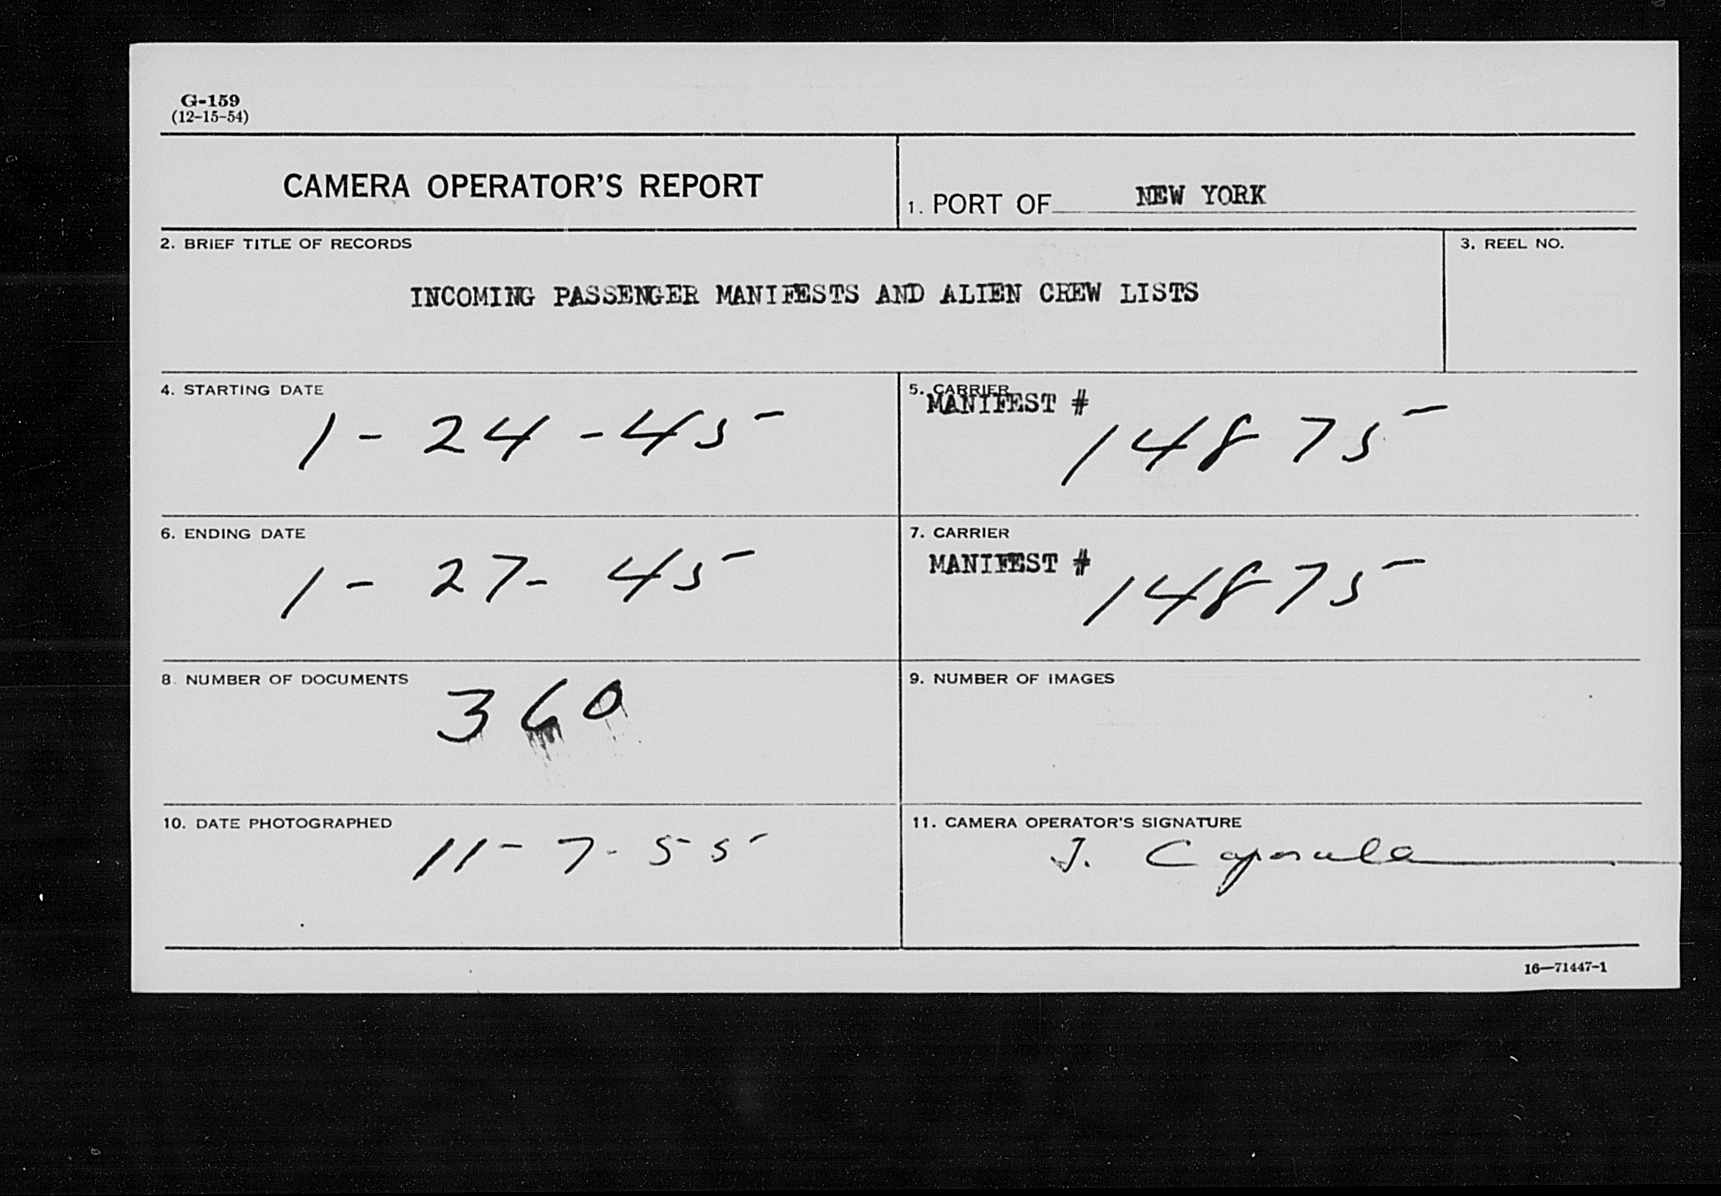 G-159
(12-15-54)
CAMERA OPERATOR'S REPORT
1. PORT OF NEW YORK
2. BRIEF TITLE OF RECORDS
3. REEL NO.
INCOMING PASSENGER MANIFESTS AND ALIEN CREW LISTS
4. STARTING DATE
1-24-45
5. CARRIER
MANIFEST #
14875
6. ENDING DATE
1-27-45
7. CARRIER
MANIFEST #
14875
8. NUMBER OF DOCUMENTS
360
9. NUMBER OF IMAGES
10. DATE PHOTOGRAPHED
11-7-55
11. CAMERA OPERATOR'S SIGNATURE
J.
16—71447-1